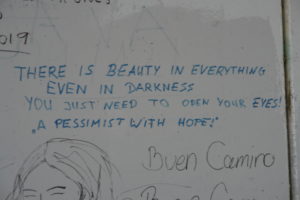 2019
THERE IS BEAUTY IN EVERYTHING
EVEN IN DARKNESS
YOU JUST NEED TO OPEN YOUR EYES!
„A PESSIMIST WITH HOPE!"
Buen Camino
Buen Camino